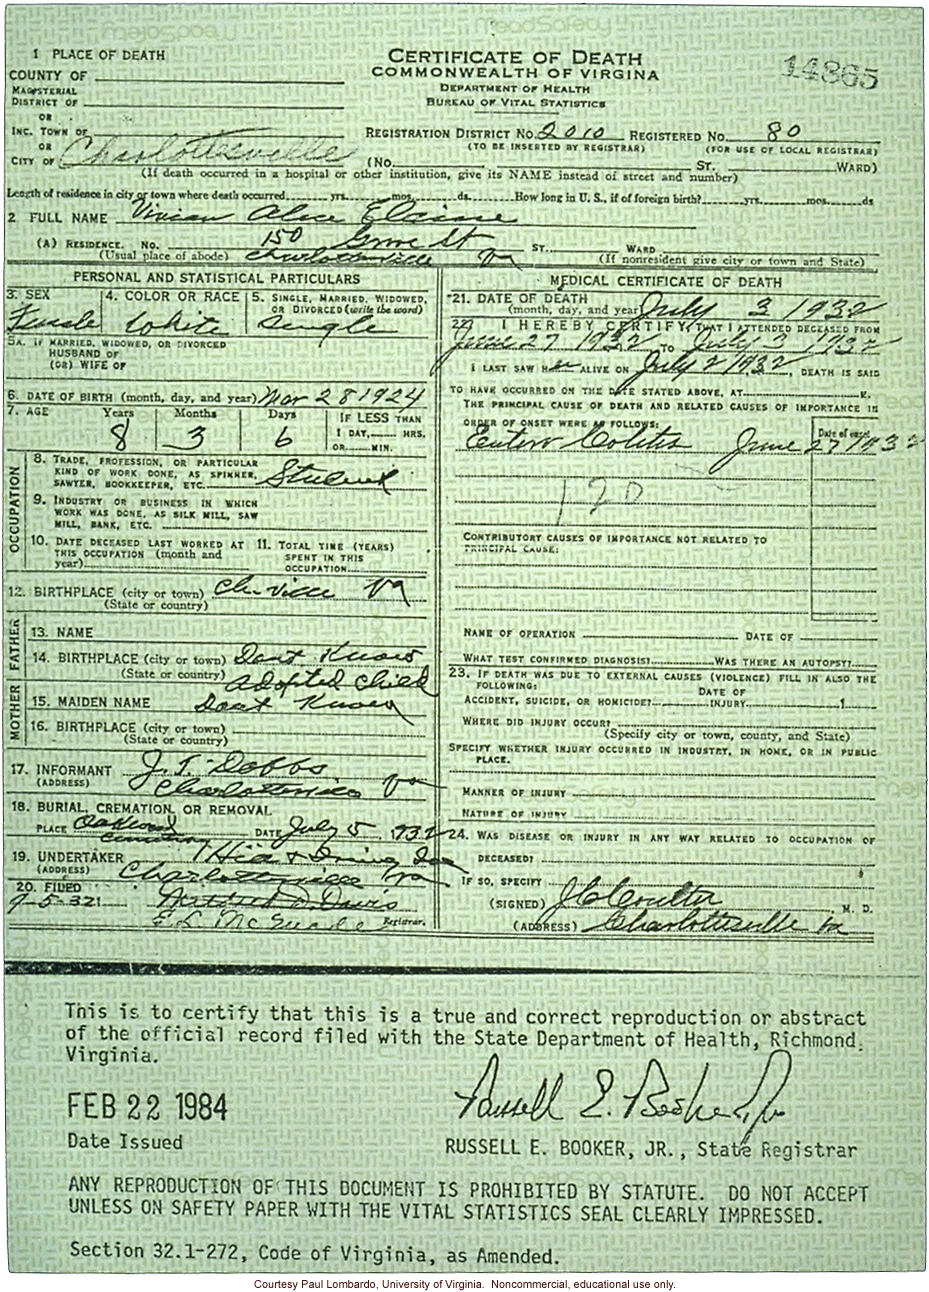 1 PLACE OF DEATH
COUNTY OF
MAGISTERIAL
DISTRICT OF
OR
INC. TOWN OF
OR
CITY OF Charlottesville
CERTIFICATE OF DEATH
COMMONWEALTH OF VIRGINA
DEPARTMENT OF HEALTH
BUREAU OF VITAL STATISTICS
14865
REGISTRATION DISTRICT NO. 2010 REGISTERED NO. 80
(TO BE INSERTED BY REGISTRAR) (FOR USE OF LOCAL REGISTRAR)
(NO. ST. WARD)
(If death occurred in a hospital or other institution, give its NAME instead of street and number)
Length of residence in city or town where death occurred yrs. mos. ds. How long in U. S., if of foreign birth? yrs. mos. ds
2 FULL NAME Vivian Alice Elaine
(A) RESIDENCE. NO. 150 Grove St ST. WARD
(Usual place of abode) Charlottesville Va (If nonresident give city or town and State)
PERSONAL AND STATISTICAL PARTICULARS
3. SEX 4. COLOR OR RACE 5. SINGLE, MARRIED, WIDOWED,
OR DIVORCED (write the word)
Female White Single
5A. IF MARRIED, WIDOWED, OR DIVORCED
HUSBAND OF
(OR) WIFE OF
6. DATE OF BIRTH (month, day, and year) Mar 28 1924
7. AGE Years Months Days IF LESS THAN
1 DAY, HRS.
OR MIN.
8 3 6
OCCUPATION
8. TRADE, PROFESSION, OR PARTICULAR
KIND OF WORK DONE, AS SPINNER,
SAWYER, BOOKKEEPER, ETC. Student
9. INDUSTRY OR BUSINESS IN WHICH
WORK WAS DONE, AS SILK MILL, SAW
MILL, BANK, ETC.
10. DATE DECEASED LAST WORKED AT
THIS OCCUPATION (month and
year)
11. TOTAL TIME (YEARS)
SPENT IN THIS
OCCUPATION
12. BIRTHPLACE (city or town) Ch. ville Va
(State or country)
FATHER
13. NAME
14. BIRTHPLACE (city or town) Dont Know
(State or country) adopted child
MOTHER
15. MAIDEN NAME Dont Know
16. BIRTHPLACE (city or town)
(State or country)
17. INFORMANT J. T. Dobbs
(ADDRESS) Charlottesville Va
18. BURIAL, CREMATION, OR REMOVAL
PLACE Oakwood DATE July 5, 1932
19. UNDERTAKER
(ADDRESS) Charlottesville Va
20. FILED
7-5-32 Mildred D. Davis
Registrar.
MEDICAL CERTIFICATE OF DEATH
21. DATE OF DEATH
(month, day, and year) July 3 1932
22. I HEREBY CERTIFY, THAT I ATTENDED DECEASED FROM
June 27 1932 TO July 3 1932
I LAST SAW Her ALIVE ON July 2 1932, DEATH IS SAID
TO HAVE OCCURRED ON THE DATE STATED ABOVE, AT M.
THE PRINCIPAL CAUSE OF DEATH AND RELATED CAUSES OF IMPORTANCE IN
ORDER OF ONSET WERE AS FOLLOWS:
Date of onset
Entero Colitis June 27 1932
120
CONTRIBUTORY CAUSES OF IMPORTANCE NOT RELATED TO
PRINCIPAL CAUSE:
NAME OF OPERATION DATE OF
WHAT TEST CONFIRMED DIAGNOSIS? WAS THERE AN AUTOPSY?
23. IF DEATH WAS DUE TO EXTERNAL CAUSES (VIOLENCE) FILL IN ALSO THE
FOLLOWING:
DATE OF
ACCIDENT, SUICIDE, OR HOMICIDE? INJURY 1
WHERE DID INJURY OCCUR?
(Specify city or town, county, and State)
SPECIFY WHETHER INJURY OCCURRED IN INDUSTRY, IN HOME, OR IN PUBLIC
PLACE.
MANNER OF INJURY
NATURE OF INJURY
24. WAS DISEASE OR INJURY IN ANY WAY RELATED TO OCCUPATION OF
DECEASED?
IF SO, SPECIFY
(SIGNED) J C Coulter M. D.
(ADDRESS) Charlottesville Va
This is to certify that this is a true and correct reproduction or abstract
of the official record filed with the State Department of Health, Richmond,
Virginia.
FEB 22 1984
Date Issued
Russell E. Booker, Jr
RUSSELL E. BOOKER, JR., State Registrar
ANY REPRODUCTION OF THIS DOCUMENT IS PROHIBITED BY STATUTE. DO NOT ACCEPT
UNLESS ON SAFETY PAPER WITH THE VITAL STATISTICS SEAL CLEARLY IMPRESSED.
Section 32.1-272, Code of Virginia, as Amended.
Courtesy Paul Lombardo, University of Virginia. Noncommercial, educational use only.